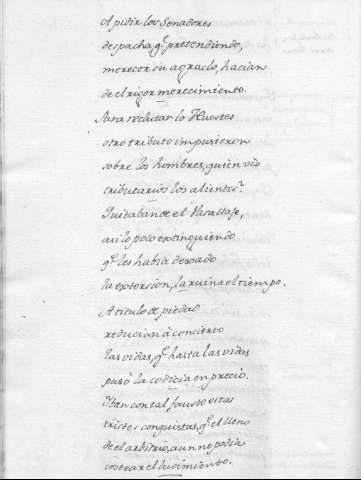 A pedir los Senadores
despacha, q̃ pretendiendo,
merecer su agrado, hacian
de el rigor merecimiento.
Para reclutar lo Huestes
otro tributo impusieron
sobre los hombres, quien vio
tributarios los alientos?
Quitaban de el Vasallaje,
asi lo poco extinguiendo
q̃ les habia dexado
la extorsion, la ruina el tiempo.
A titulo de piedad
reducian à concierto
las vidas, q̃ hasta las vidas
puso la codicia en precio.
Iban con tal fausto estas
tristes conquistas, q̃ el lleno
de el arbitrio, aun no podia
costear el lucimiento.